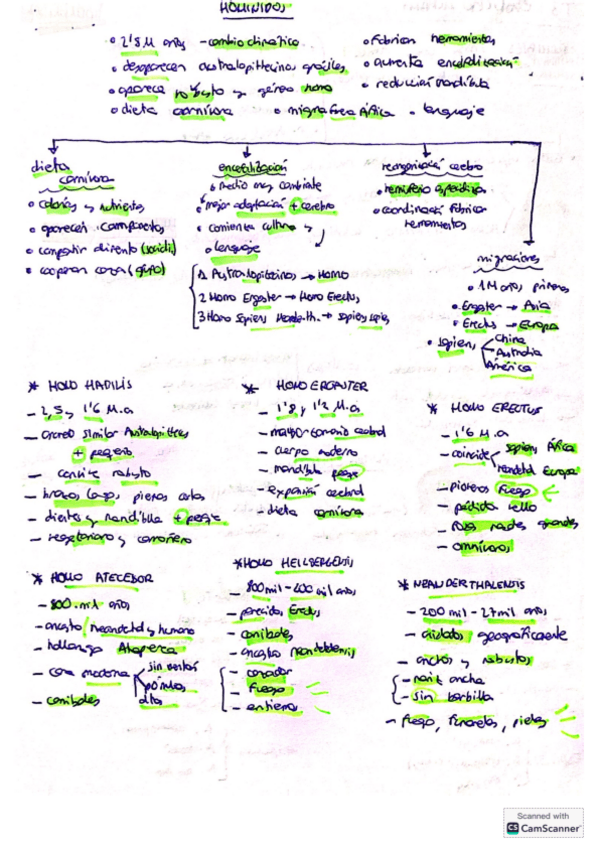 HOMINIDOS
• 2'8 M años - cambio climático
• Fabrican herramientas
• desaparecen australopithecinos gráciles,
• aumenta encefalización
• aparece robusto y género homo
• reducción mandíbula
• dieta carnívora • migra fuera África • lenguaje
dieta carnívora
• calorías y nutrientes
• aparecen campamentos
• compartir alimento (social)
• cooperan caza (grupo)
encefalización
• medio muy cambiante
• mejor adaptación + cerebro
• comienza cultura y
• lenguaje
1. Australopitecinos → Homo
2 Homo Ergaster → Homo Erectus
3 Homo Sapiens Neanderth. → sapiens sapiens
reorganización cerebro
• hemisferio
• coordinación fabricar herramientas
migraciones
• 1 M años primeros
• Ergaster → Asia
• Erectus → Europa
• sapiens China
Australia
América
* HOMO HABILIS
- 2,5 y 1'6 M.a
- similar Australopithecus
+ pequeño
- robusto
- brazos largos, piernas cortas
- dientes y mandíbula + peque
- vegetariano y carroñero
* HOMO ERGASTER
- 1'8 y 1'2 M.a
- mayor tamaño cerebral
- cuerpo moderno
- mandíbula peque
- expansión cerebral
- dieta carnívora
* HOMO ERECTUS
- 1'6 M.a
- coincide sapiens África
neandertal Europa
- pioneros fuego
- pérdida vello
- fosas nasales grandes
- omnívoros
* HOMO ATECEDOR
- 800 mil años
- ancestro neandertal y humano
- hallazgo Atapuerca
- cara moderna sin
pómulos
altos
- caníbales
* HOMO HEILBERGENSIS
- 800 mil - 200 mil años
- parecidos Erectus
- caníbales
- ancestro neandertalensis
- cazador
- fuego
- entierros
* NEANDERTHALENSIS
- 200 mil - 27 mil años
- aislados geográficamente
- anchos y robustos
- nariz ancha
- sin barbilla
- fuego, funerales, pieles
Scanned with
CS CamScanner